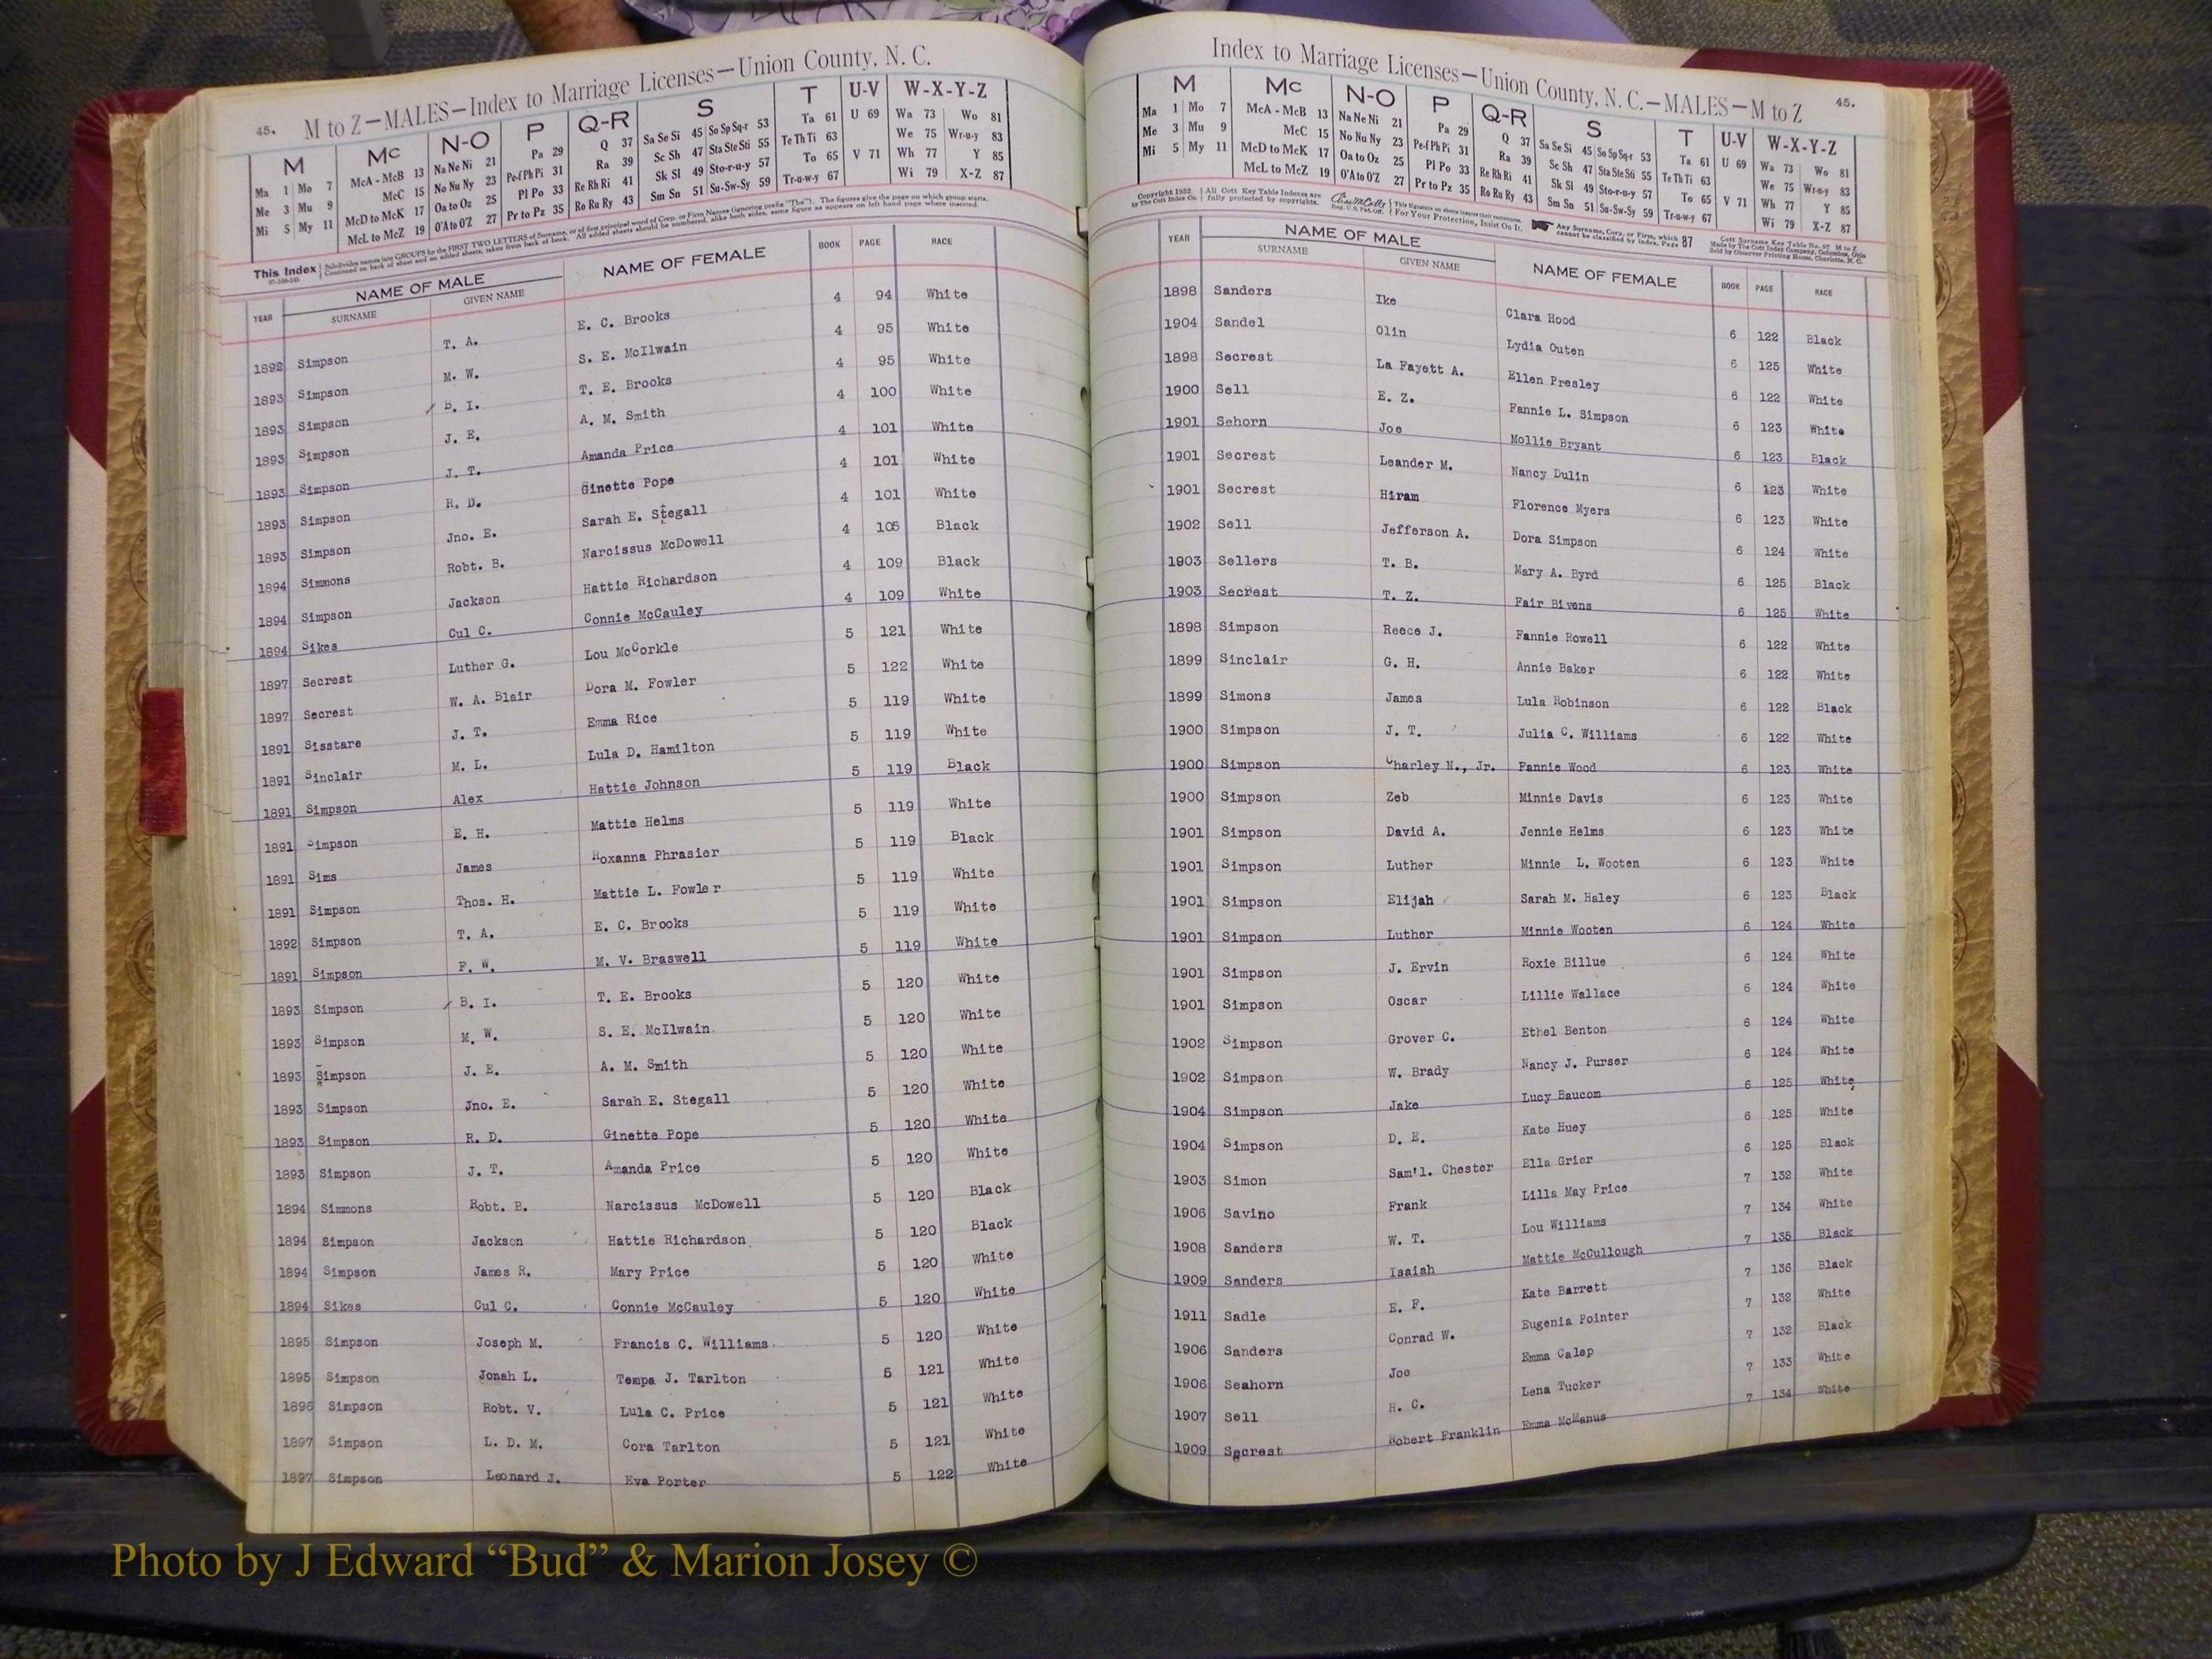 45. M to Z—MALES—Index to Marriage Licenses—Union County, N. C.
M Mc N-O P Q-R S T U-V W-X-Y-Z
Ma 1 Mo 7 McA - McB 13 Na Ne Ni 21 Pa 29 Q 37 Sa Se Si 45 So Sp Sq-r 53 Ta 61 U 69 Wa 73 Wo 81
Me 3 Mu 9 McC 15 No Nu Ny 23 Pe-f Ph Pi 31 Ra 39 Sc Sh 47 Sta Ste Sti 55 Te Th Ti 63 We 75 Wr-u-y 83
Mi 5 My 11 McD to McK 17 Oa to Oz 25 Pl Po 33 Re Rh Ri 41 Sk Sl 49 Sto-r-u-y 57 To 65 V 71 Wh 77 Y 85
McL to McZ 19 O'A to O'Z 27 Pr to Pz 35 Ro Ru Ry 43 Sm Sn 51 Su-Sw-Sy 59 Tr-u-w-y 67 Wi 79 X-Z 87
This Index Subdivides names into GROUPS by the FIRST TWO LETTERS of Surname, or of first principal word of Corp. or Firm Names (ignoring prefix "The"). The figures give the page on which group starts.
Continued on back of sheet and on added sheets, taken from back of book. All added sheets should be numbered, alike both sides, same figure as appears on left hand page where inserted.
YEAR NAME OF MALE NAME OF FEMALE BOOK PAGE RACE
SURNAME GIVEN NAME
1892 Simpson T. A. E. C. Brooks 4 94 White
1893 Simpson M. W. S. E. McIlwain 4 95 White
1893 Simpson B. I. T. E. Brooks 4 95 White
1893 Simpson J. E. A. M. Smith 4 100 White
1893 Simpson J. T. Amanda Price 4 101 White
1893 Simpson R. D. Ginette Pope 4 101 White
1893 Simpson Jno. E. Sarah E. Stegall 4 101 White
1894 Simmons Robt. B. Narcissus McDowell 4 105 Black
1894 Simpson Jackson Hattie Richardson 4 109 Black
1894 Sikes Cul C. Connie McCauley 4 109 White
1897 Secrest Luther G. Lou McCorkle 5 121 White
1897 Secrest W. A. Blair Dora M. Fowler 5 122 White
1891 Sisstare J. T. Emma Rice 5 119 White
1891 Sinclair M. L. Lula D. Hamilton 5 119 White
1891 Simpson Alex Hattie Johnson 5 119 Black
1891 Simpson E. H. Mattie Helms 5 119 White
1891 Sims James Roxanna Phrasier 5 119 Black
1891 Simpson Thos. H. Mattie L. Fowler 5 119 White
1892 Simpson T. A. E. C. Brooks 5 119 White
1891 Simpson F. W. M. V. Braswell 5 119 White
1893 Simpson B. I. T. E. Brooks 5 120 White
1893 Simpson M. W. S. E. McIlwain 5 120 White
1893 Simpson J. E. A. M. Smith 5 120 White
1893 Simpson Jno. E. Sarah E. Stegall 5 120 White
1893 Simpson R. D. Ginette Pope 5 120 White
1893 Simpson J. T. Amanda Price 5 120 White
1894 Simmons Robt. B. Narcissus McDowell 5 120 Black
1894 Simpson Jackson Hattie Richardson 5 120 Black
1894 Simpson James R. Mary Price 5 120 White
1894 Sikes Cul C. Connie McCauley 5 120 White
1895 Simpson Joseph M. Francis C. Williams 5 120 White
1895 Simpson Jonah L. Tempa J. Tarlton 5 121 White
1896 Simpson Robt. V. Lula C. Price 5 121 White
1897 Simpson L. D. M. Cora Tarlton 5 121 White
1897 Simpson Leonard J. Eva Porter 5 122 White
Index to Marriage Licenses—Union County, N. C.—MALES—M to Z 45.
M Mc N-O P Q-R S T U-V W-X-Y-Z
Ma 1 Mo 7 McA - McB 13 Na Ne Ni 21 Pa 29 Q 37 Sa Se Si 45 So Sp Sq-r 53 Ta 61 U 69 Wa 73 Wo 81
Me 3 Mu 9 McC 15 No Nu Ny 23 Pe-f Ph Pi 31 Ra 39 Sc Sh 47 Sta Ste Sti 55 Te Th Ti 63 We 75 Wr-u-y 83
Mi 5 My 11 McD to McK 17 Oa to Oz 25 Pl Po 33 Re Rh Ri 41 Sk Sl 49 Sto-r-u-y 57 To 65 V 71 Wh 77 Y 85
McL to McZ 19 O'A to O'Z 27 Pr to Pz 35 Ro Ru Ry 43 Sm Sn 51 Su-Sw-Sy 59 Tr-u-w-y 67 Wi 79 X-Z 87
Copyright 1932 by The Cott Index Co. All Cott Key Table Indexes are fully protected by copyrights. For Your Protection, Insist On It. Any Surname, Corp. or Firm, which cannot be classified by index, Page 87
YEAR NAME OF MALE NAME OF FEMALE BOOK PAGE RACE
SURNAME GIVEN NAME
1898 Sanders Ike Clara Hood 6 122 Black
1904 Sandel Olin Lydia Outen 6 125 White
1898 Secrest La Fayett A. Ellen Presley 6 122 White
1900 Sell E. Z. Fannie L. Simpson 6 123 White
1901 Sehorn Joe Mollie Bryant 6 123 Black
1901 Secrest Leander M. Nancy Dulin 6 123 White
1901 Secrest Hiram Florence Myers 6 123 White
1902 Sell Jefferson A. Dora Simpson 6 124 White
1903 Sellers T. B. Mary A. Byrd 6 125 Black
1903 Secrest T. Z. Fair Bivens 6 125 White
1898 Simpson Reece J. Fannie Rowell 6 122 White
1899 Sinclair G. H. Annie Baker 6 122 White
1899 Simons James Lula Robinson 6 122 Black
1900 Simpson J. T. Julia C. Williams 6 122 White
1900 Simpson Charley N., Jr. Fannie Wood 6 123 White
1900 Simpson Zeb Minnie Davis 6 123 White
1901 Simpson David A. Jennie Helms 6 123 White
1901 Simpson Luther Minnie L. Wooten 6 123 White
1901 Simpson Elijah Sarah M. Haley 6 123 Black
1901 Simpson Luther Minnie Wooten 6 124 White
1901 Simpson J. Ervin Roxie Billue 6 124 White
1901 Simpson Oscar Lillie Wallace 6 124 White
1902 Simpson Grover C. Ethel Benton 6 124 White
1902 Simpson W. Brady Nancy J. Purser 6 124 White
1904 Simpson Jake Lucy Baucom 6 125 White
1904 Simpson D. E. Kate Huey 6 125 White
1903 Simon Sam'l. Chester Ella Grier 6 125 Black
1906 Savino Frank Lilla May Price 7 132 White
1908 Sanders W. T. Lou Williams 7 134 White
1909 Sanders Isaiah Mattie McCullough 7 135 Black
1911 Sadle E. F. Kate Barrett 7 136 Black
1906 Sanders Conrad W. Eugenia Pointer 7 132 White
1906 Seahorn Joe Emma Calep 7 132 Black
1907 Sell H. C. Lena Tucker 7 133 White
1909 Secrest Robert Franklin Emma McManus 7 134 White
Photo by J Edward “Bud” & Marion Josey ©